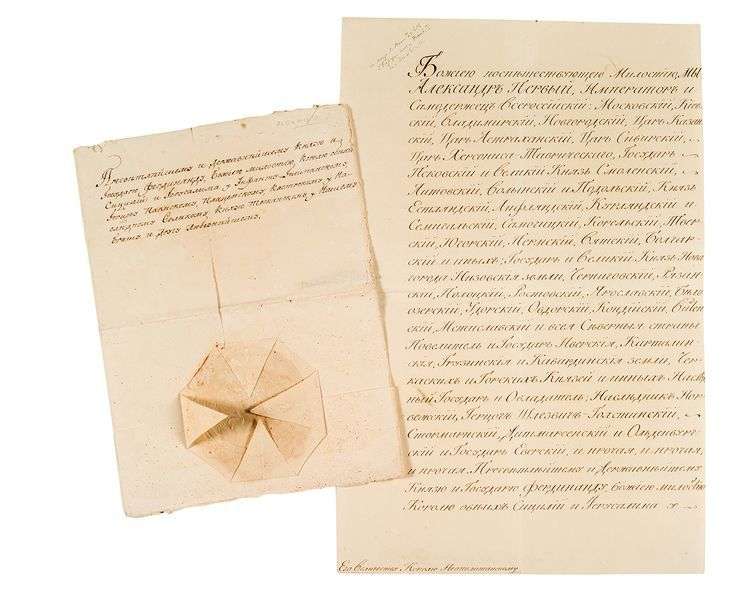 Пресвѣтлѣйшемъ и Державнѣйшемъ Князю и
Государю Фердинанду, Божіею милостію, Королю обѣихъ
Сициліи и Іерусалима, Инфанту Гишпанскому
Герцогу Пармскому, Кастро
Великому Князю Тосканскому, Нашему
Брату и Другу Любезнѣйшему.
Божіею поспѣшествующею Милостію, МЫ
Александръ Первый, Императоръ и
Самодержецъ Всероссійскій: Московскій, Кіев-
скій, Владимирскій, Новогородскій, Царь Казан-
скій, Царь Астраханскій, Царь Сибирскій,
Царь Херсониса Таврическаго, Государь
Псковскій и Великій Князь Смоленскій,
Литовскій, Волынскій и Подольскій, Князь
Естляндскій, Лифляндскій, Курляндскій и
Семигальскій, Самогицкій, Корельскій, Твер-
скій, Югорскій, Пермскій, Вятскій, Болгар-
скій и иныхъ; Государь и Великій Князь Нова-
города Низовскія земли, Черниговскій, Рязан-
скій, Полоцкій, Ростовскій, Ярославскій, Бѣло-
озерскій, Удорскій, Обдорскій, Кондійскій, Витеп-
скій, Мстиславскій и всея Сѣверныя страны
Повелитель и Государь Иверскія, Карталин-
скія, Грузинскія и Кабардинскія земли, Чер-
касскихъ и Горскихъ Князей и иныхъ Наслѣд-
ный Государь и Обладатель, Наслѣдникъ Нор-
вежскій, Герцогъ Шлезвигъ-Голстинскій,
Стормарнскій, Дитмарсенскій и Олденбург-
скій и Государь Еверскій, и прочая, и прочая,
и прочая. Пресвѣтлѣйшему и Державнѣйшему
Князю и Государю Фердинанду, Божіею милостію
Королю обѣихъ Сициліи и Іерусалима
Его Величеству Королю Неаполитанскому